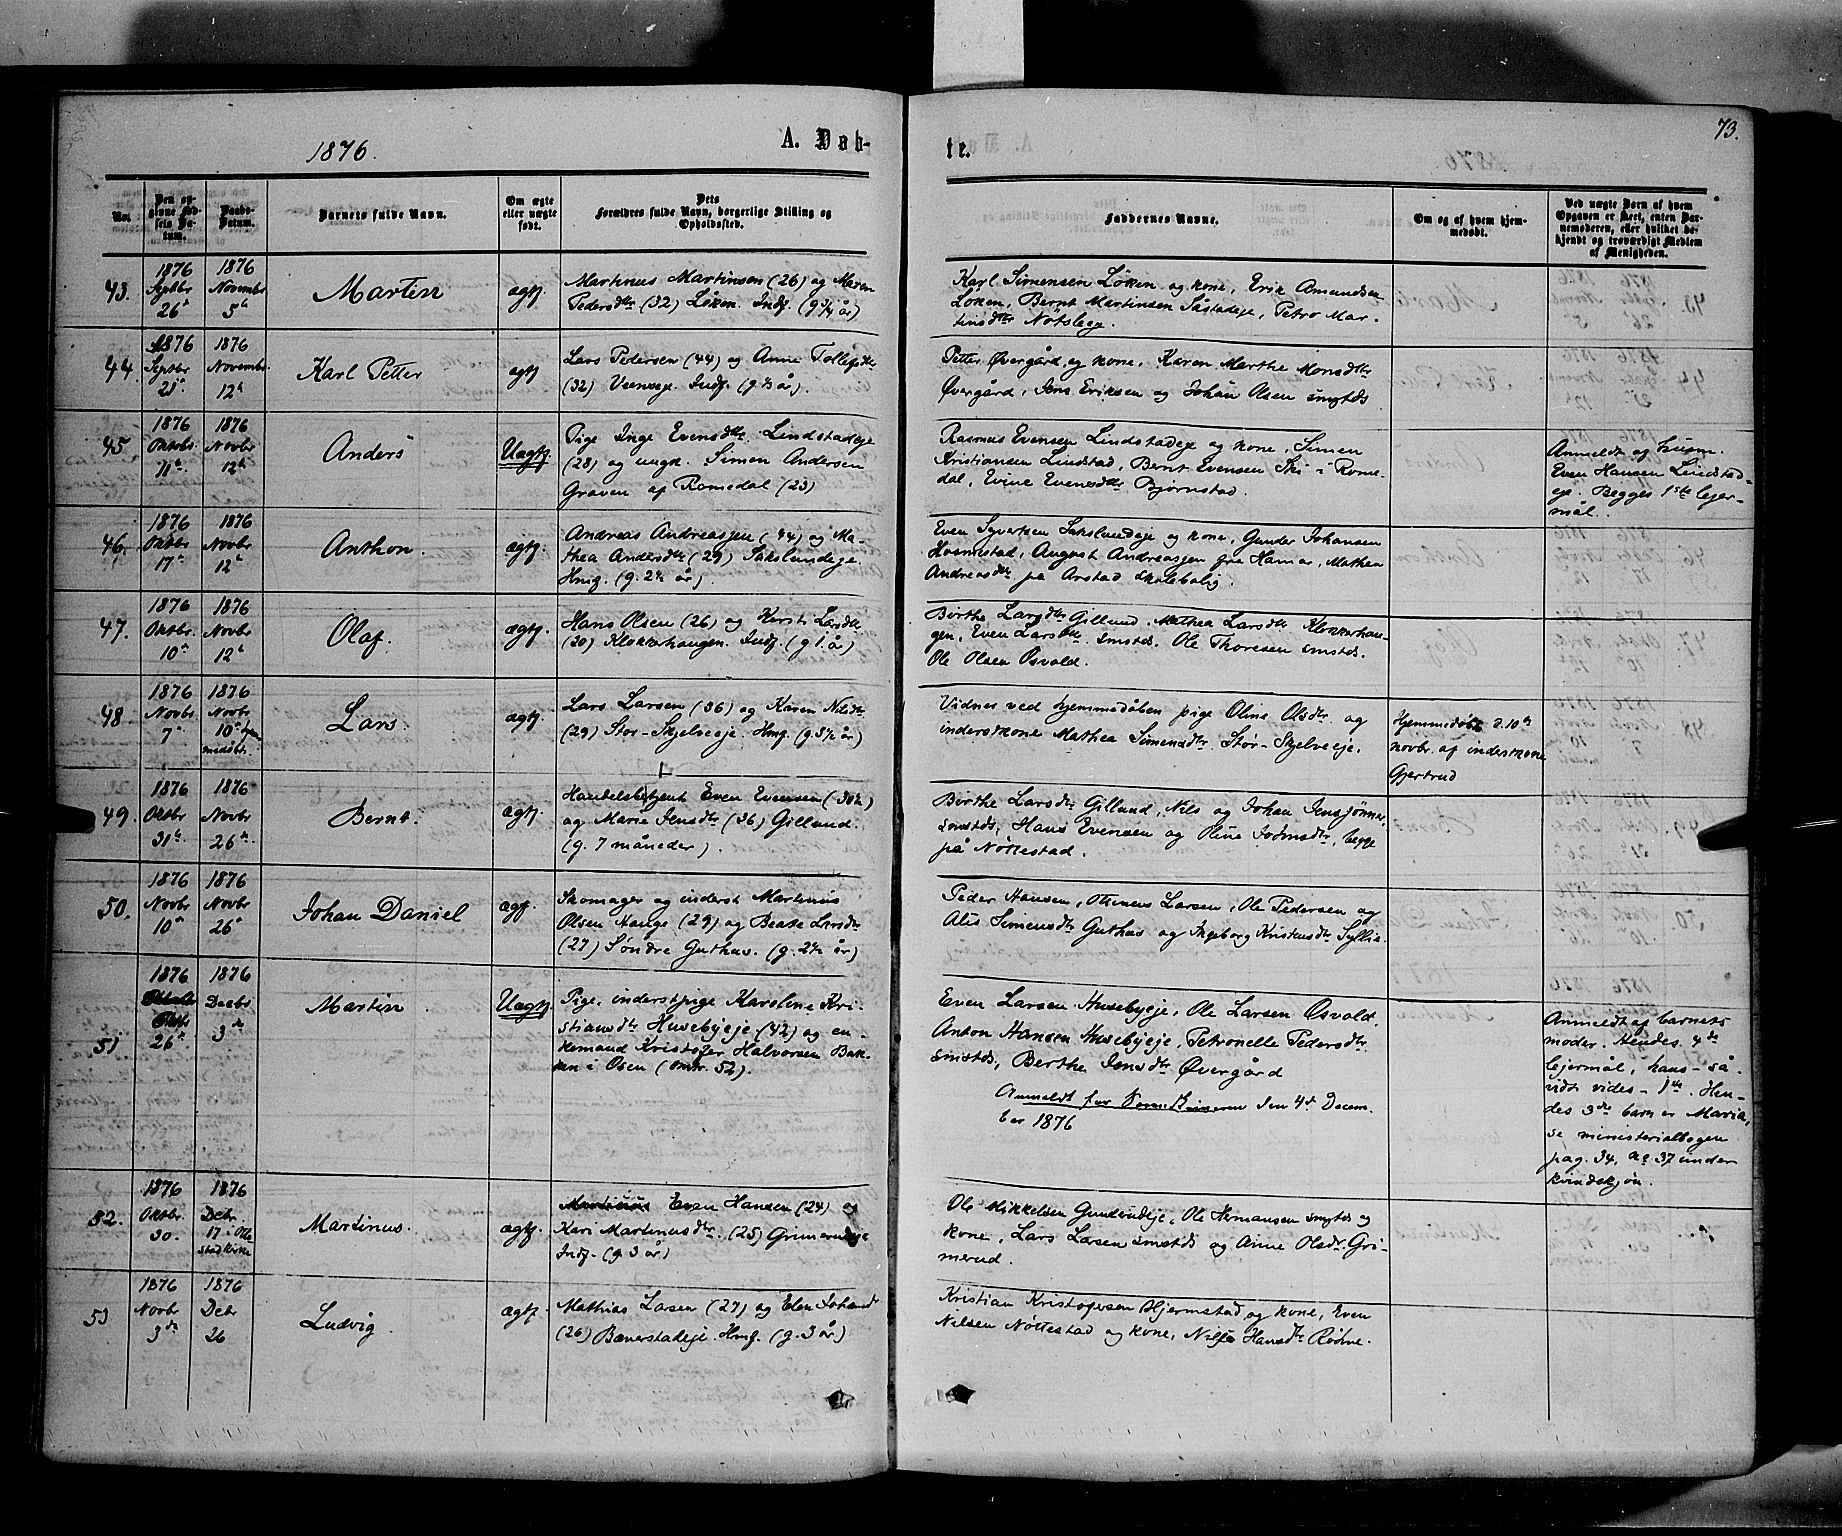 1876.
A. Døb-
te.
73.
No.
Den opgivne Fødsels Datum.
Daabs-Datum.
Barnets fulde Navn.
Om ægte eller uægte født.
Dets Forældres fulde Navn, borgerlige Stilling og Opholdssted.
Faddernes Navne.
Om og af hvem hjemmedøbt.
Ved uægte Børn af hvem Opgaven er skeet, enten Barnemoderen, eller hvilket bekjendt og troværdigt Medlem af Menigheden.
43. 1876 Septbr 26de 1876 Novembr 5te Martin ægtf.
Martinus Martinsen (26) og Maren
Pedersdtr (32) Løken. Indf. (g 3/4 år)
Karl Simensen Løken og kone, Erik Amundsen
Løken, Bernt Martinsen Såstadeje, Petro Mar-
tinsdtr Nötsleje.
44. 1876 Septbr 1876 Novembr 12te Karl Petter ægtf.
Lars Pedersen (44) og Anne Tollefsdtr
(32) Indf.
Petter Øvergård og kone, Karen Marthe Monsdtr
Øvergård, Jens Eriksen og Johan Olsen smstds
45 1876 Oktbr. 11te 1876 Novbr 12te Anders Uægtf.
Pige Inge Evensdtr. Lindstadeje
(28) og ungk. Simen Andersen
Graven af Romedal (23)
Rasmus Evensen Lindstadeje og kone, Simen
Kristiansen Lindstad, Bernt Evensen Ski i Rome-
dal, Evine Evensdtr Bjørnstad.
Anmeldt og husm.
Even Hansen Lindstad-
eje. Begges 1ste lejer-
mål.
46. 1876 Oktbr 17de 1876 Novbr 12te Anthon. ægtf.
Andreas Andreassen (44) og Ma-
thea Andersdtr (29) Sakslundeje.
Hmg. (g. 2½ år).
Even Syversen Sakslundeje og kone, Gunder Johansen
Rosmestad, August Andreassen fra Hamar, Mathea
Andreasdtr på Arstad skolebolig.
47. 1876 Oktbr. 10de 1876 Novbr 12te Olaf. ægtf.
Hans Olsen (26) og Kersti Larsdtr
(30) Klokkerhaugen. Indf. (g 1. år)
Børthe Larsdtr Gillund, Mathea Larsdtr Klokkerhau-
gen, Even Larsdtr smstds. Ole Thoresen smstds.
Ole Olsen Osvold.
48. 1876 Novbr 7de 1876 Novbr 10de hjem-
medøbt. Lars. ægtf.
Lars Larsen (36) og Karen Nilsdtr
(29) Stor-Skjelveeje. Hmg. (g 5½ år)
Vidner ved hjemmedåben pige Oline Olsdtr. og
inderstkone Mathea Simensdtr. Stor-Skjelveeje.
Hjemmedøbt d. 10de
novbr. af inderstkone
Gjertrud
49. 1876 Oktbr 31te 1876 Novbr 26de Bernt. ægtf.
Handelsbetjent Even Evensen (30½)
og Maria Jensdtr (36) Gillund.
(g. 7 måneder).
Børthe Larsdtr Gillund, Nils og Johan Jensjønner
smstds, Hans Evensen og Oline begge
på Nøttestad.
50. 1876 Novbr 10de 1876 Novbr 26de Johan Daniel ægtf.
Skomager og inderst Martinus
Olsen Hauge (29) og Beate Larsdtr
(27) Søndre Guthus. (g. 2½ år)
Peder Hansen, Othineus Larsen, Ole Pedersen og
Alis Simensdtr Guthus og Ingeborg Kristensdtr Syllie
51 1876 Oktbr 26de 1876 Decbr 3de Martin Uægtf.
Pige, inderstpige Karoline Kri-
stiansdtr Husebyeje (42) og en-
kemand Kristofer Halvorsen Bak-
ken i Osen (omtr. 52).
Even Larsen Husebyeje, Ole Larsen Osvold,
Anton Hansen Husebyeje, Petronelle Pedersdtr.
smstds, Berthe Jensdtr Øvergård
Anmeldt for den 4de Decem-
ber 1876
Anmeldt af barnets
moder. Hendes 4de
lejermål, hans - så-
vidt vides - 1ste. Hen-
des 3die barn er Maria,
se ministerialbogen
pag. 34, No 37 under
kvindekjøn.
52. 1876 Oktbr. 30. 1876 Debr 17 i Otte-
stad kirke Martinus. ægtf.
Even Hansen (24) og
Kari Martinusdtr. (25) Grimerudeje
Indf. (g. 3 år)
Ole Mikkelsen Gunderudeje, Ole Hermansen smstds og
kone, Lars Larsen smstds og Anne Olsdtr. Gri-
merud.
53 1876 Novbr 3de 1876 Debr 26 Ludvig. ægtf.
Mathias Larsen (27) og Elen Johansdtr
(26) Bæverstadeje. Hmg. (g. 3 år)
Kristian Kristofersen Hjermstad og kone, Even
Nilsen Nøttestad og kone, Hansdtr Rødne.